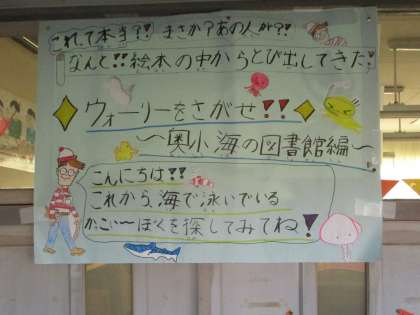 これって本当?? まさか?あの人が??
なんと!!絵本の中からとび出してきた!!
ウォーリーをさがせ!!
〜奥小海の図書館編〜
こんにちは!!
これから、海で泳いでいる
かっこい〜ぼくを探してみてね!